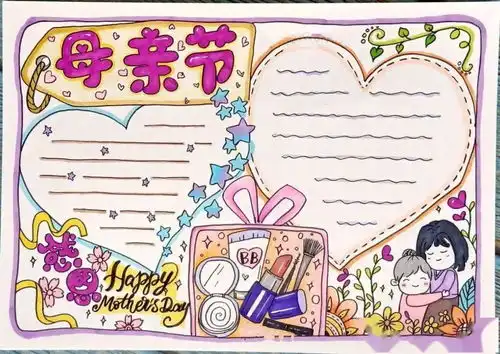 母亲节
感恩
BB
Happy
Mother's Day